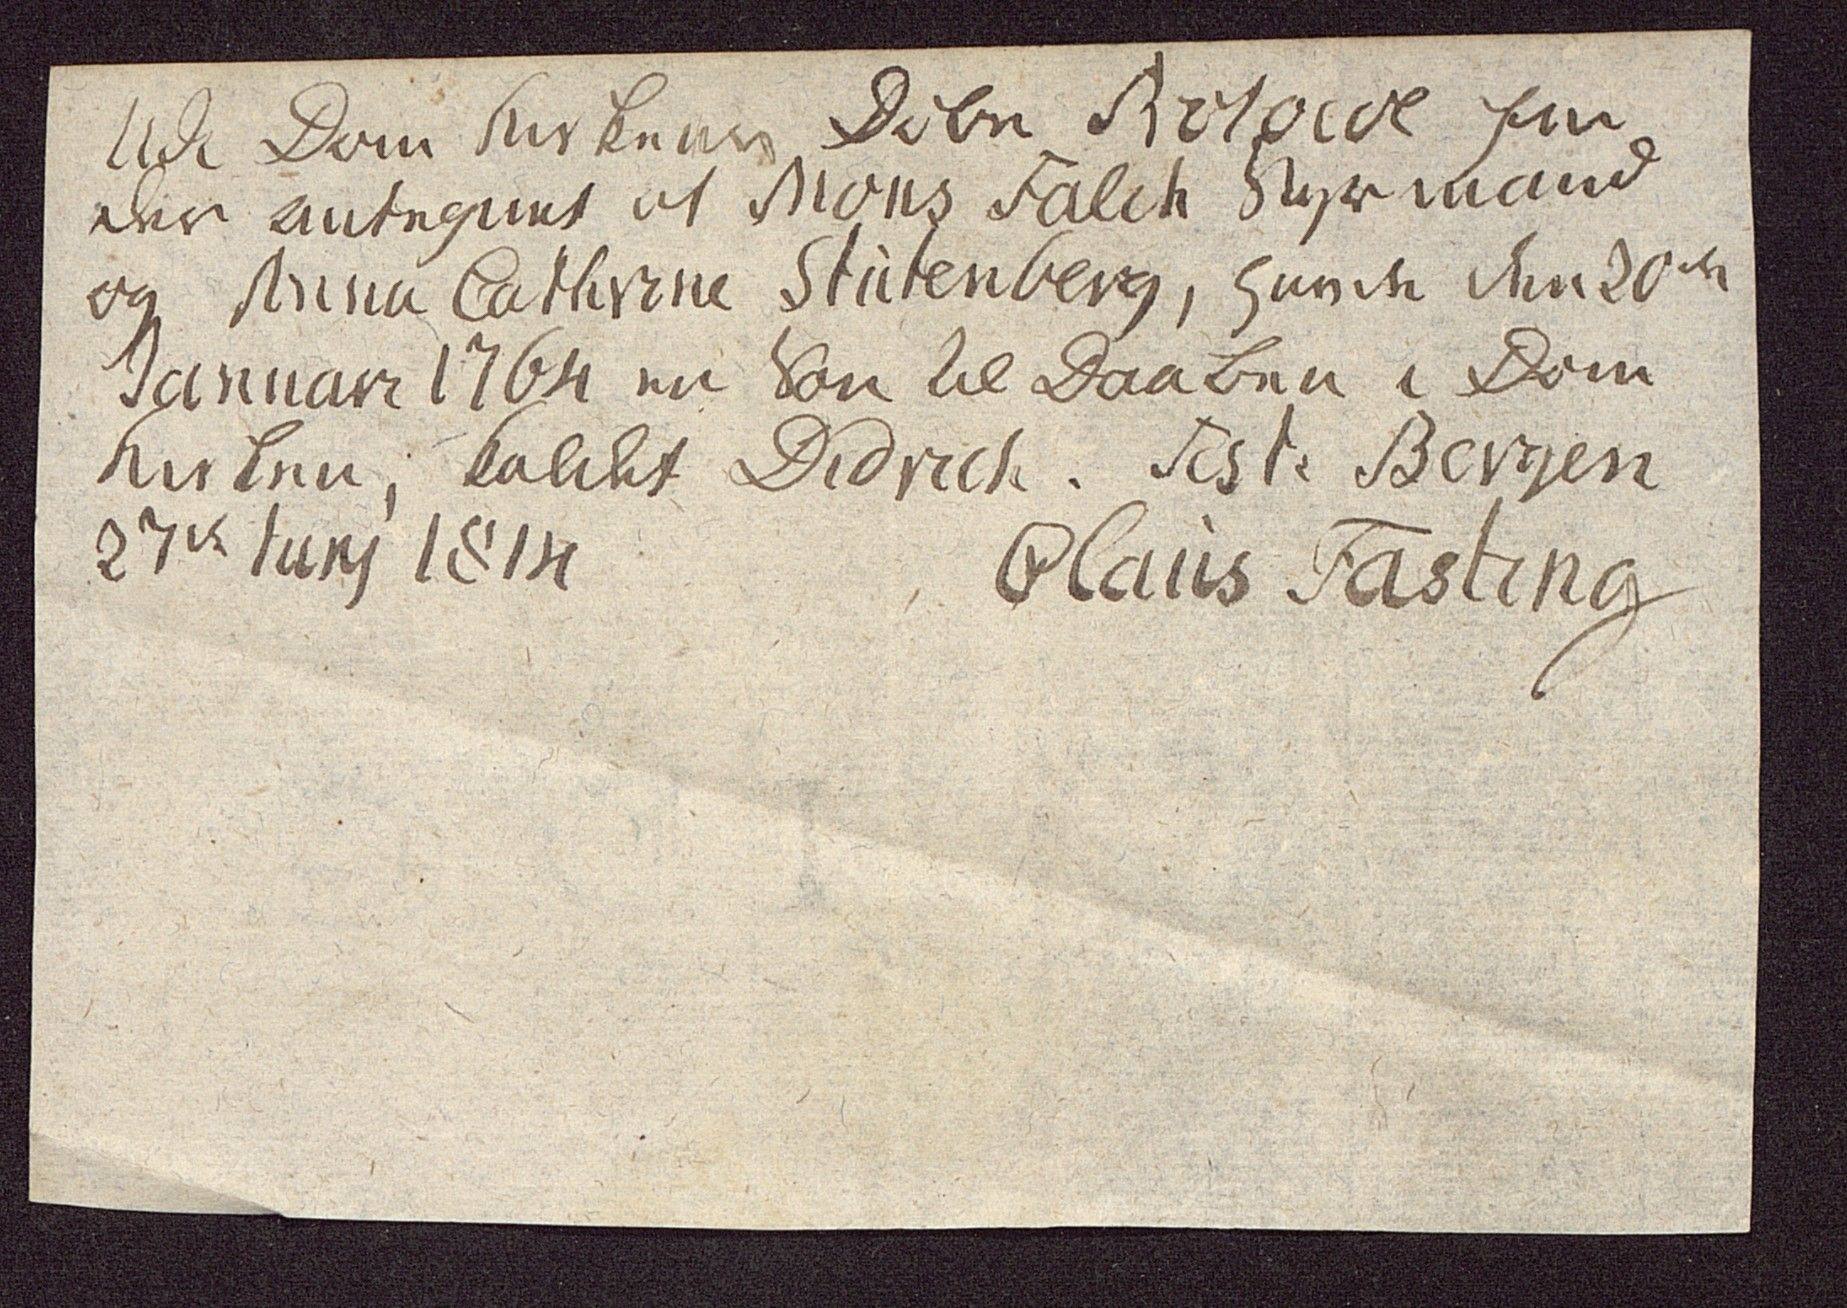 Udi Dom Kirkens Döbe Protocol fin
des antegnet at Mons Falch Styrmand
og Anna Cathrine Stütenberg, havde den 20de
Januarii 1764 en Søn til Daaben i Dom
Kirken, kaldet Didrich. Teste Bergen
27de Junj 1814
Olaüs Fasting